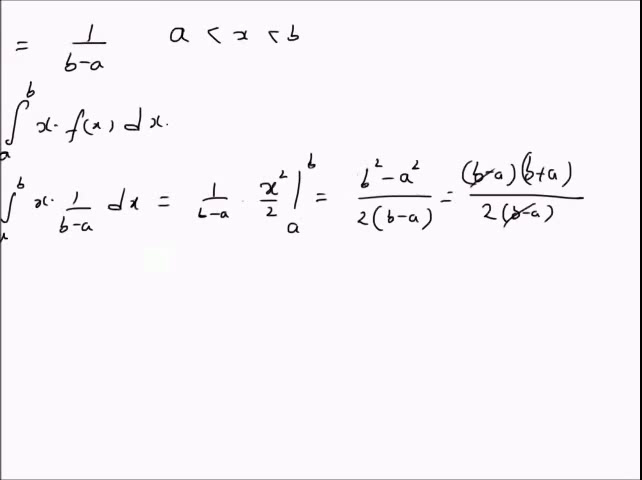 = 1/(b-a)   a < x < b
∫_a^b x· f(x) dx.
∫_a^b x· 1/(b-a) dx = 1/(b-a) · x²/2 |_a^b = (b²-a²)/(2(b-a)) = ((b-a)(b+a))/(2(b-a))